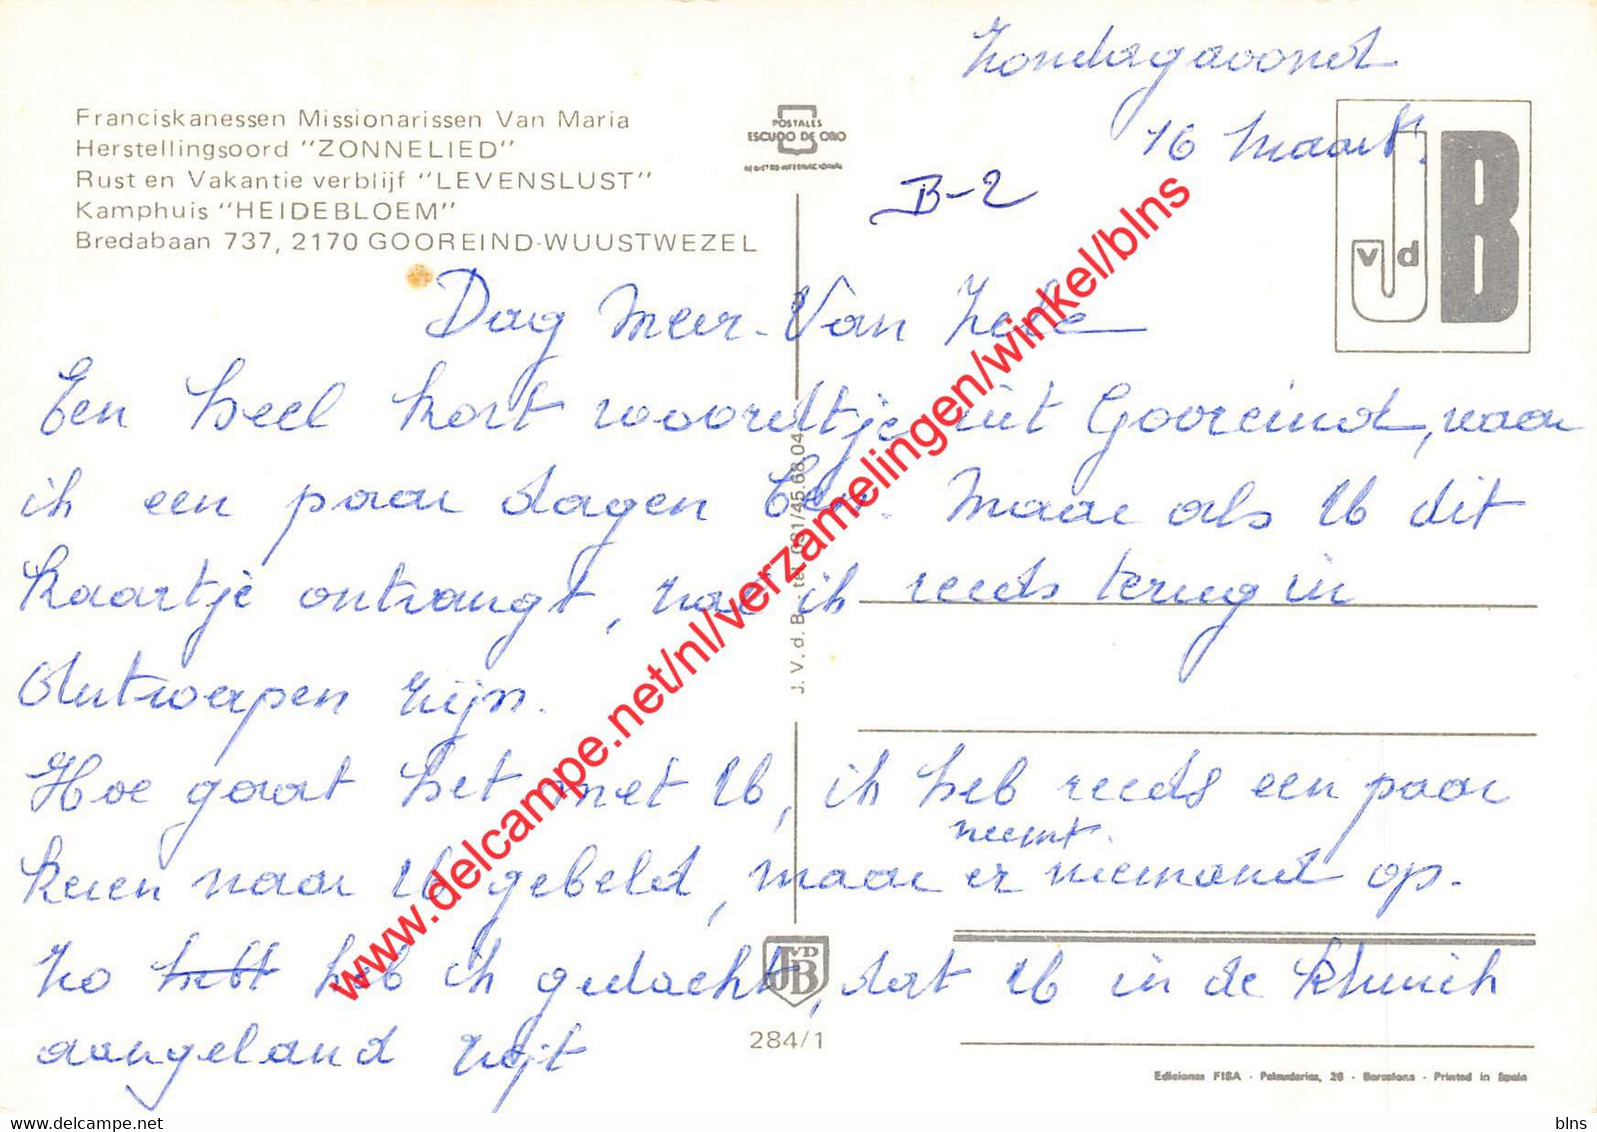 Zondagavond
16 Maart.
B-2
Franciskanessen Missionarissen Van Maria
Herstellingsoord "ZONNELIED"
Rust en Vakantie verblijf "LEVENSLUST"
Kamphuis "HEIDEBLOEM"
Bredabaan 737, 2170 GOOREIND-WUUSTWEZEL
POSTALES
ESCUDO DE ORO
REGISTRO INTERNACIONAL
J
v d
B
Dag Meer - Van
Een heel kort woordtje uit Gooreind, waar
ik een paar dagen ben. Maar als U dit
kaartje ontvangt, zal ik reeds terug in
Antwerpen zijn.
Hoe gaat het met U, ik heb reeds een paar
keren naar U gebeld, maar er neemt niemand op.
Zo hebt heb ik gedacht, dat U in de kliniek
aangeland zijt
J. V. d. B. tel. 031/45.68.04
VD
JB
284/1
Ediciones FISA - Palaudarias, 26 - Barcelona - Printed in Spain
www.delcampe.net/nl/verzamelingen/winkel/blns
blns